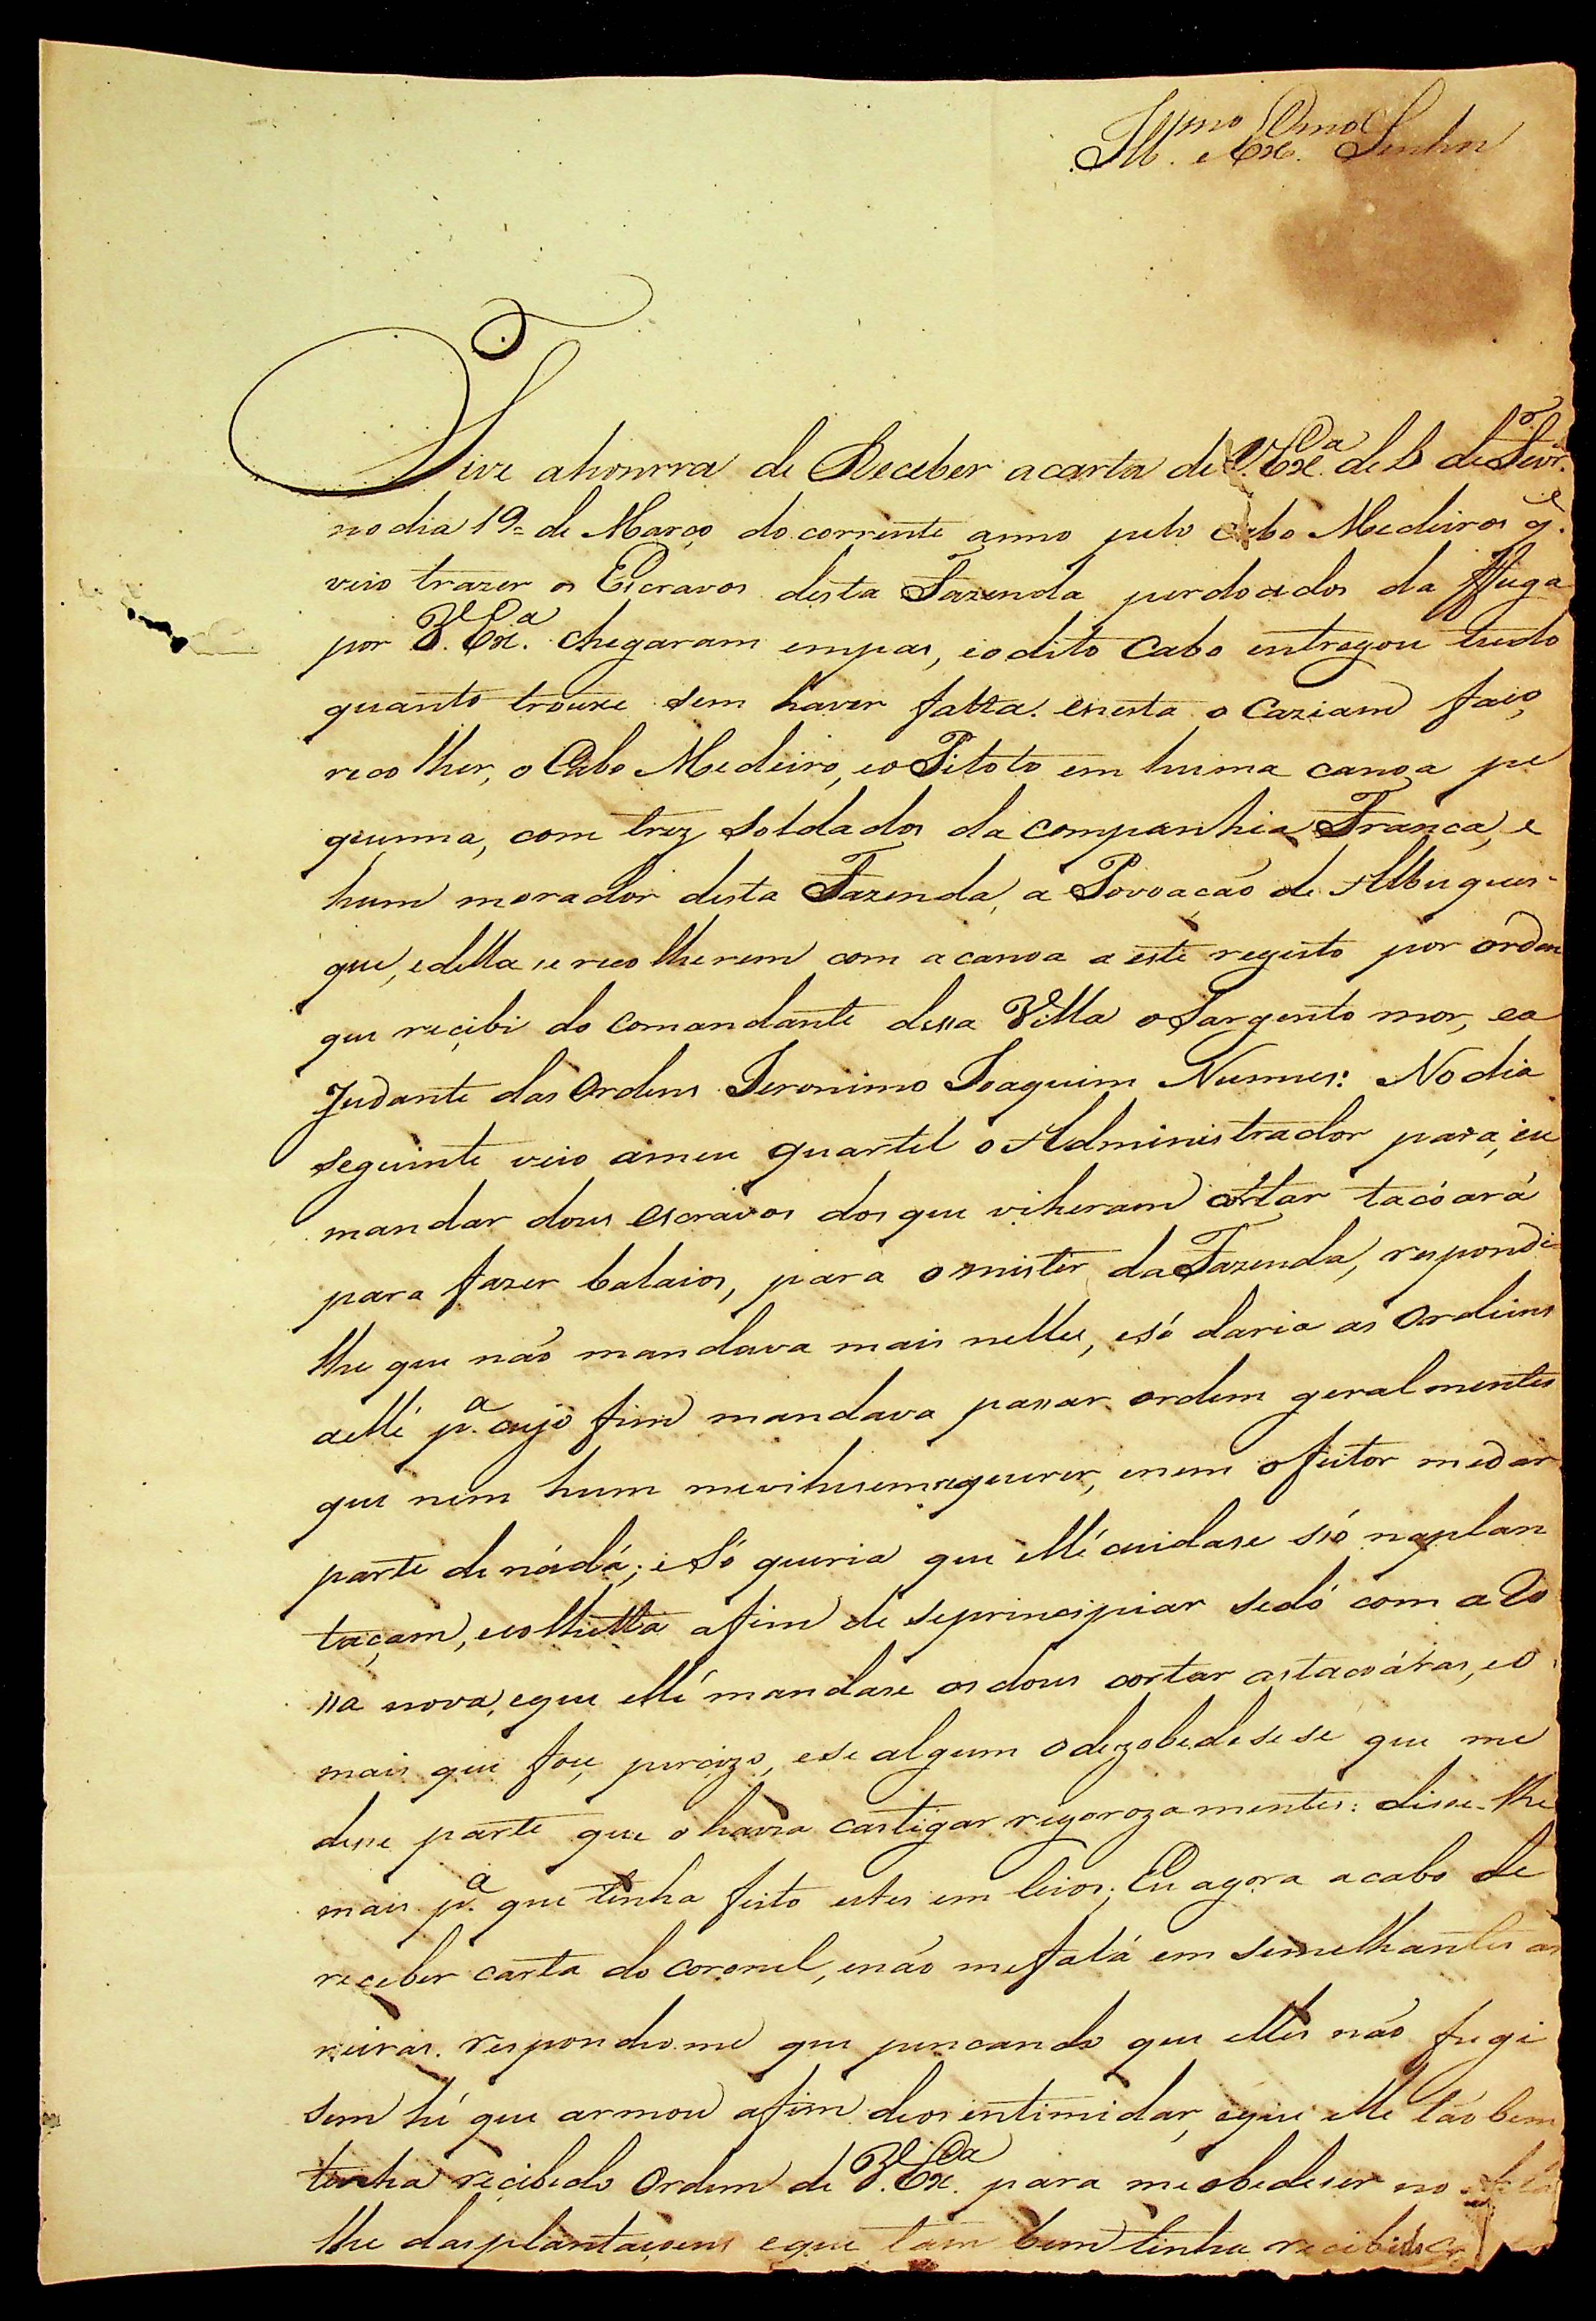 Ill.mo e Ex.mo Senhor
Tive ahonrra de Receber acarta de V. Ex.a de de Fevr.o
nodia 19 de Março do corrente anno pelo cabo Medeiros q.e
veio trazer os Escravos desta Fazenda perdoados da ffuga
por V. Ex.a chegaram empas, eodito Cabo entregou tudo
quanto trouxe sem haver falta. enesta o caziam faço
recolher, o Cabo Medeiro, eo Pitoto em huma canoa pe
quenna, com trez soldados da companhia Franca, e
hum morador desta Fazenda, a Povoacão de Albuquer-
que, edella se recolherem com acanoa a este registo por ordem
que reçibi do comandante dessa Villa o Sargento mor, ea
Judante das Ordens Jeronimo Joaquim Nunnes: Nodia
seguinte veio ameu quartel o Administrador para, eu
mandar dous escravos dos que viheram cortar tacóará
para fazer balaios, para o mister da Fazenda, respondi
lhe que não mandava mais nelles, esó daria as Ordeins
aellé p.a cujo fim mandava passar ordem geralmentes
que nem hum mevihesemrequerer, enem o feitor medar
parte denádá; eSó queria que ellé cuidase sió naplan
taçam, ecolhetta afim de seprincipiar sedó com a Ro
ssa nova, eque ellé mandase osdous cortar astacoáras, eo
mais que foçe percizo, ese algum odezobedesese que me
desse parte que ohavia castigar regorozamentes: disse-lhe
mais p.a que tinha feito estes em leios; Eu agora acabo de
receber carta do coronel, enão mefalá em semelhantes as
neiras. respondeo.me que pencando que elles não fugi
sem hé que armou afim deos entimidar, eque elle tão bem
tinha recibedo Ordem de V. Ex.a para meobedeser no
lhe dasplantaçoens eque tam bem tinha recibido